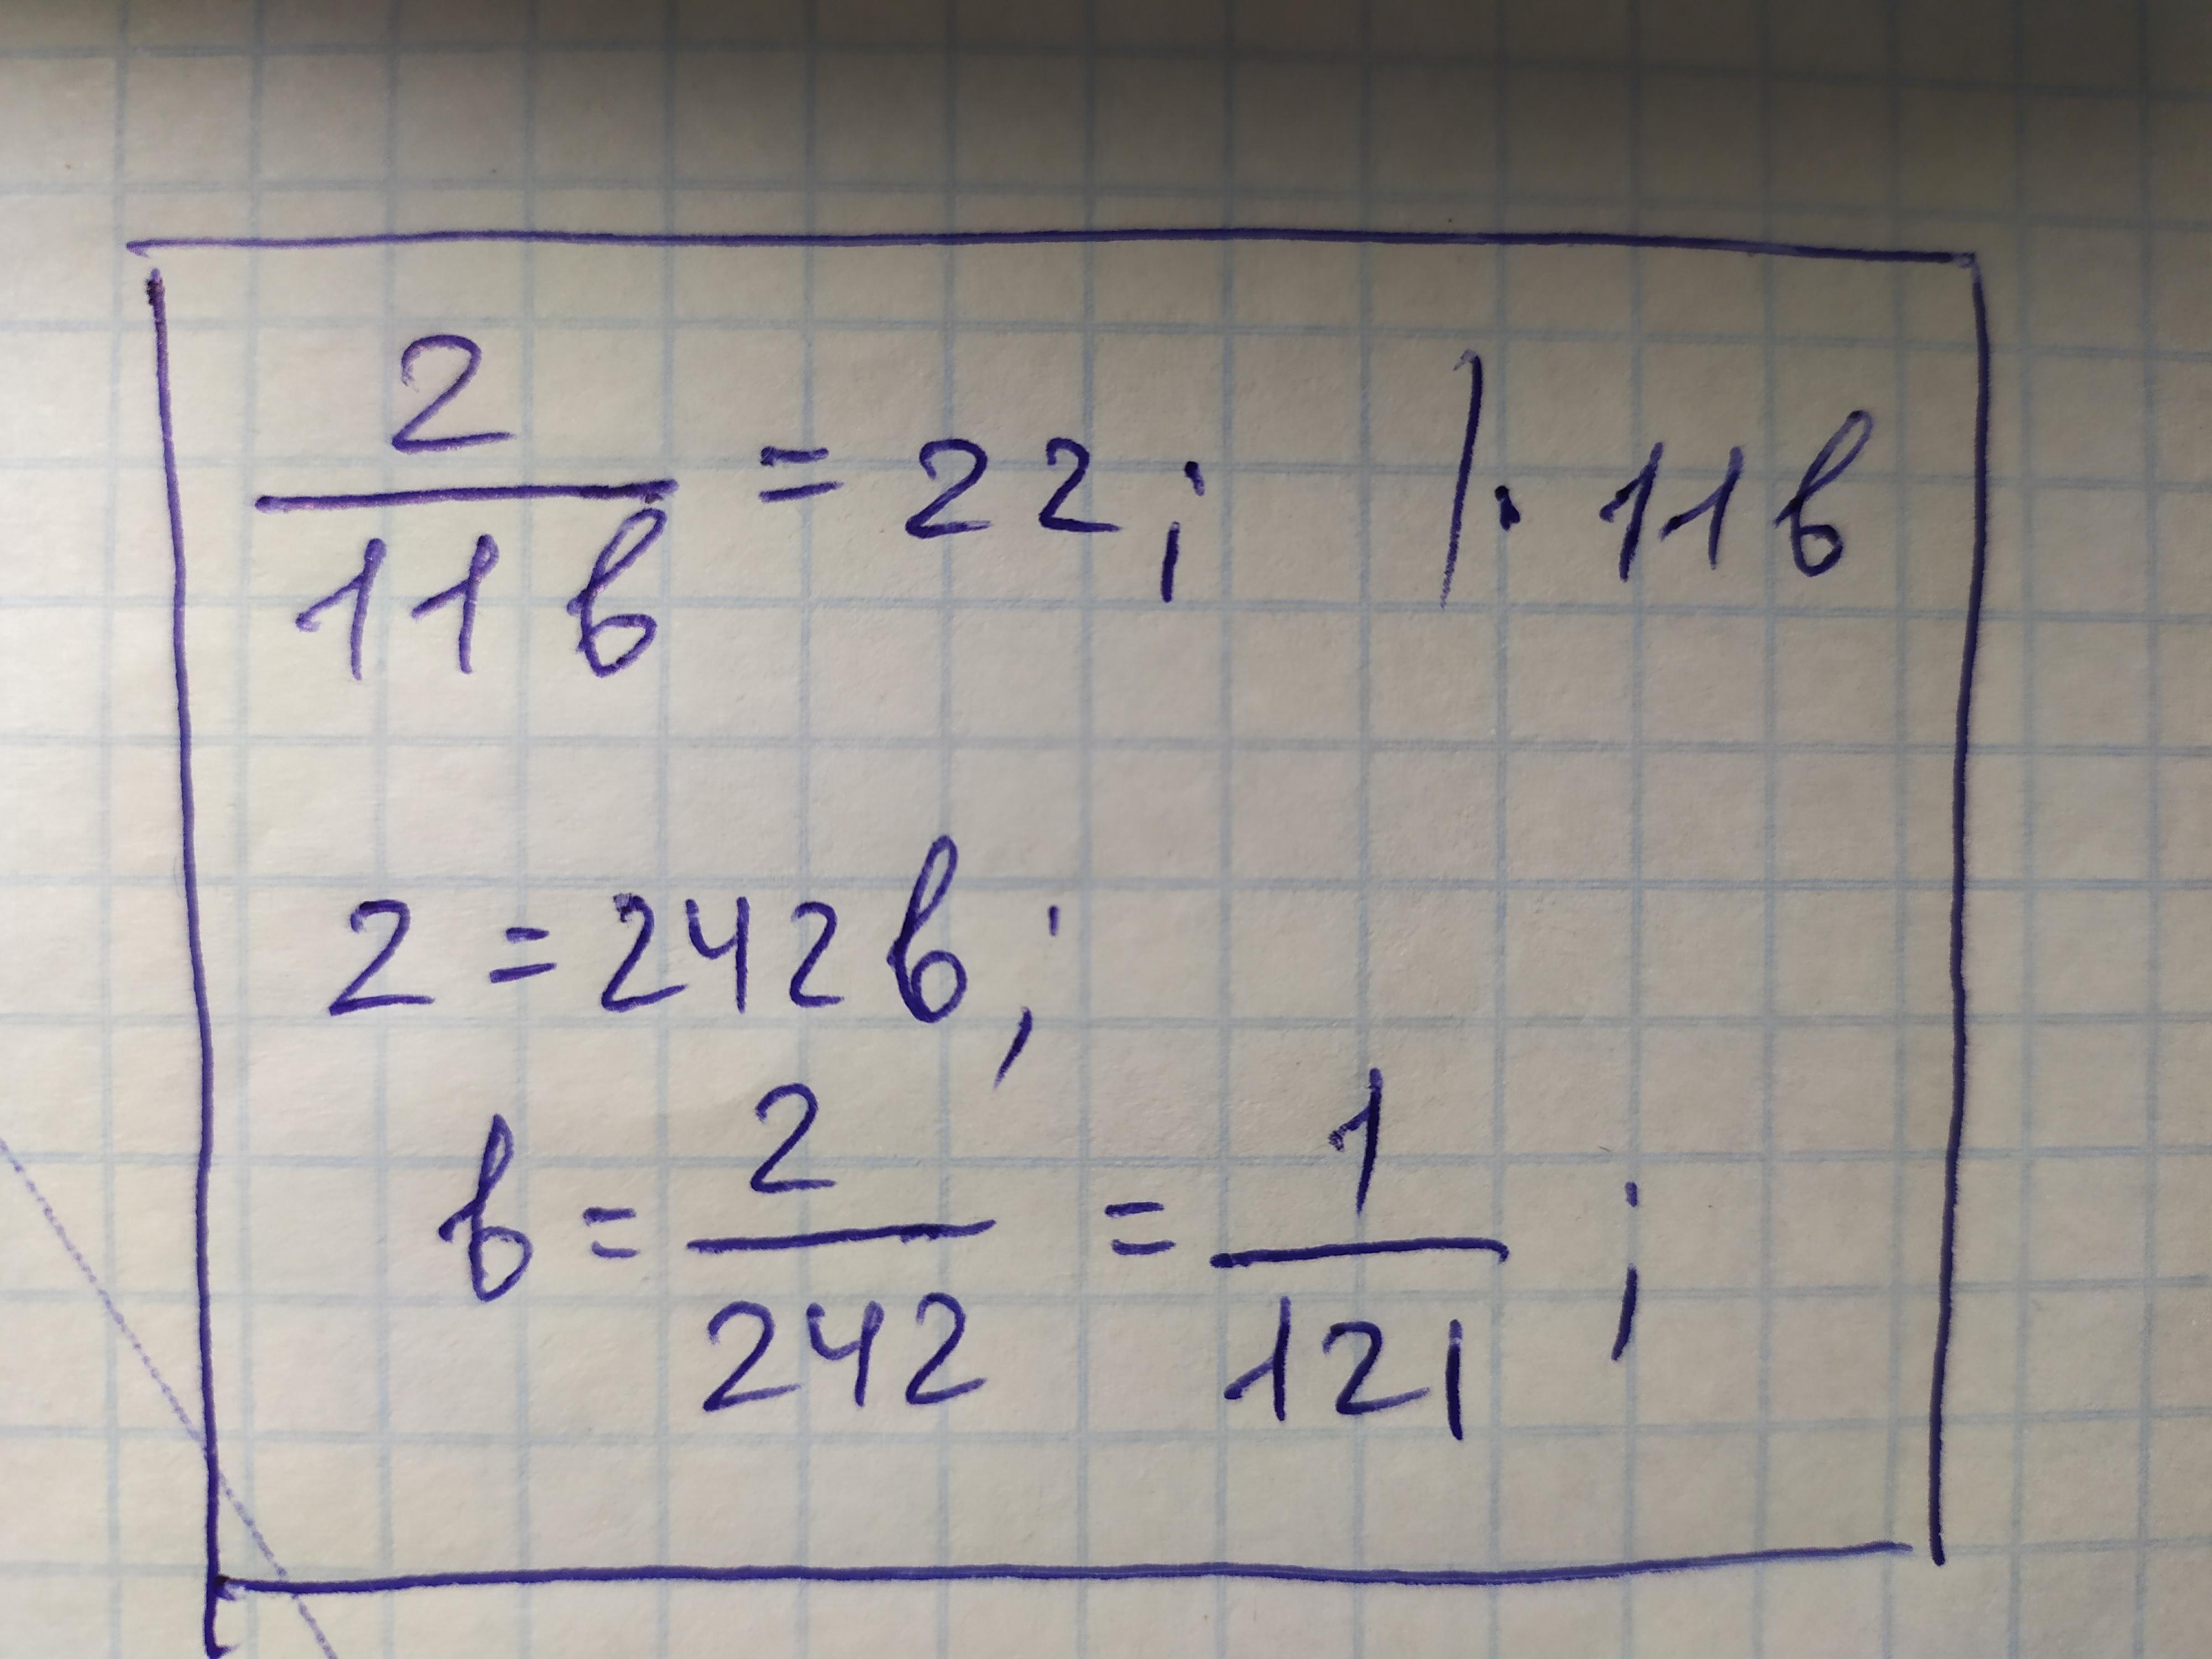 2/11b = 22; | · 11b
2 = 242b;
b = 2/242 = 1/121;